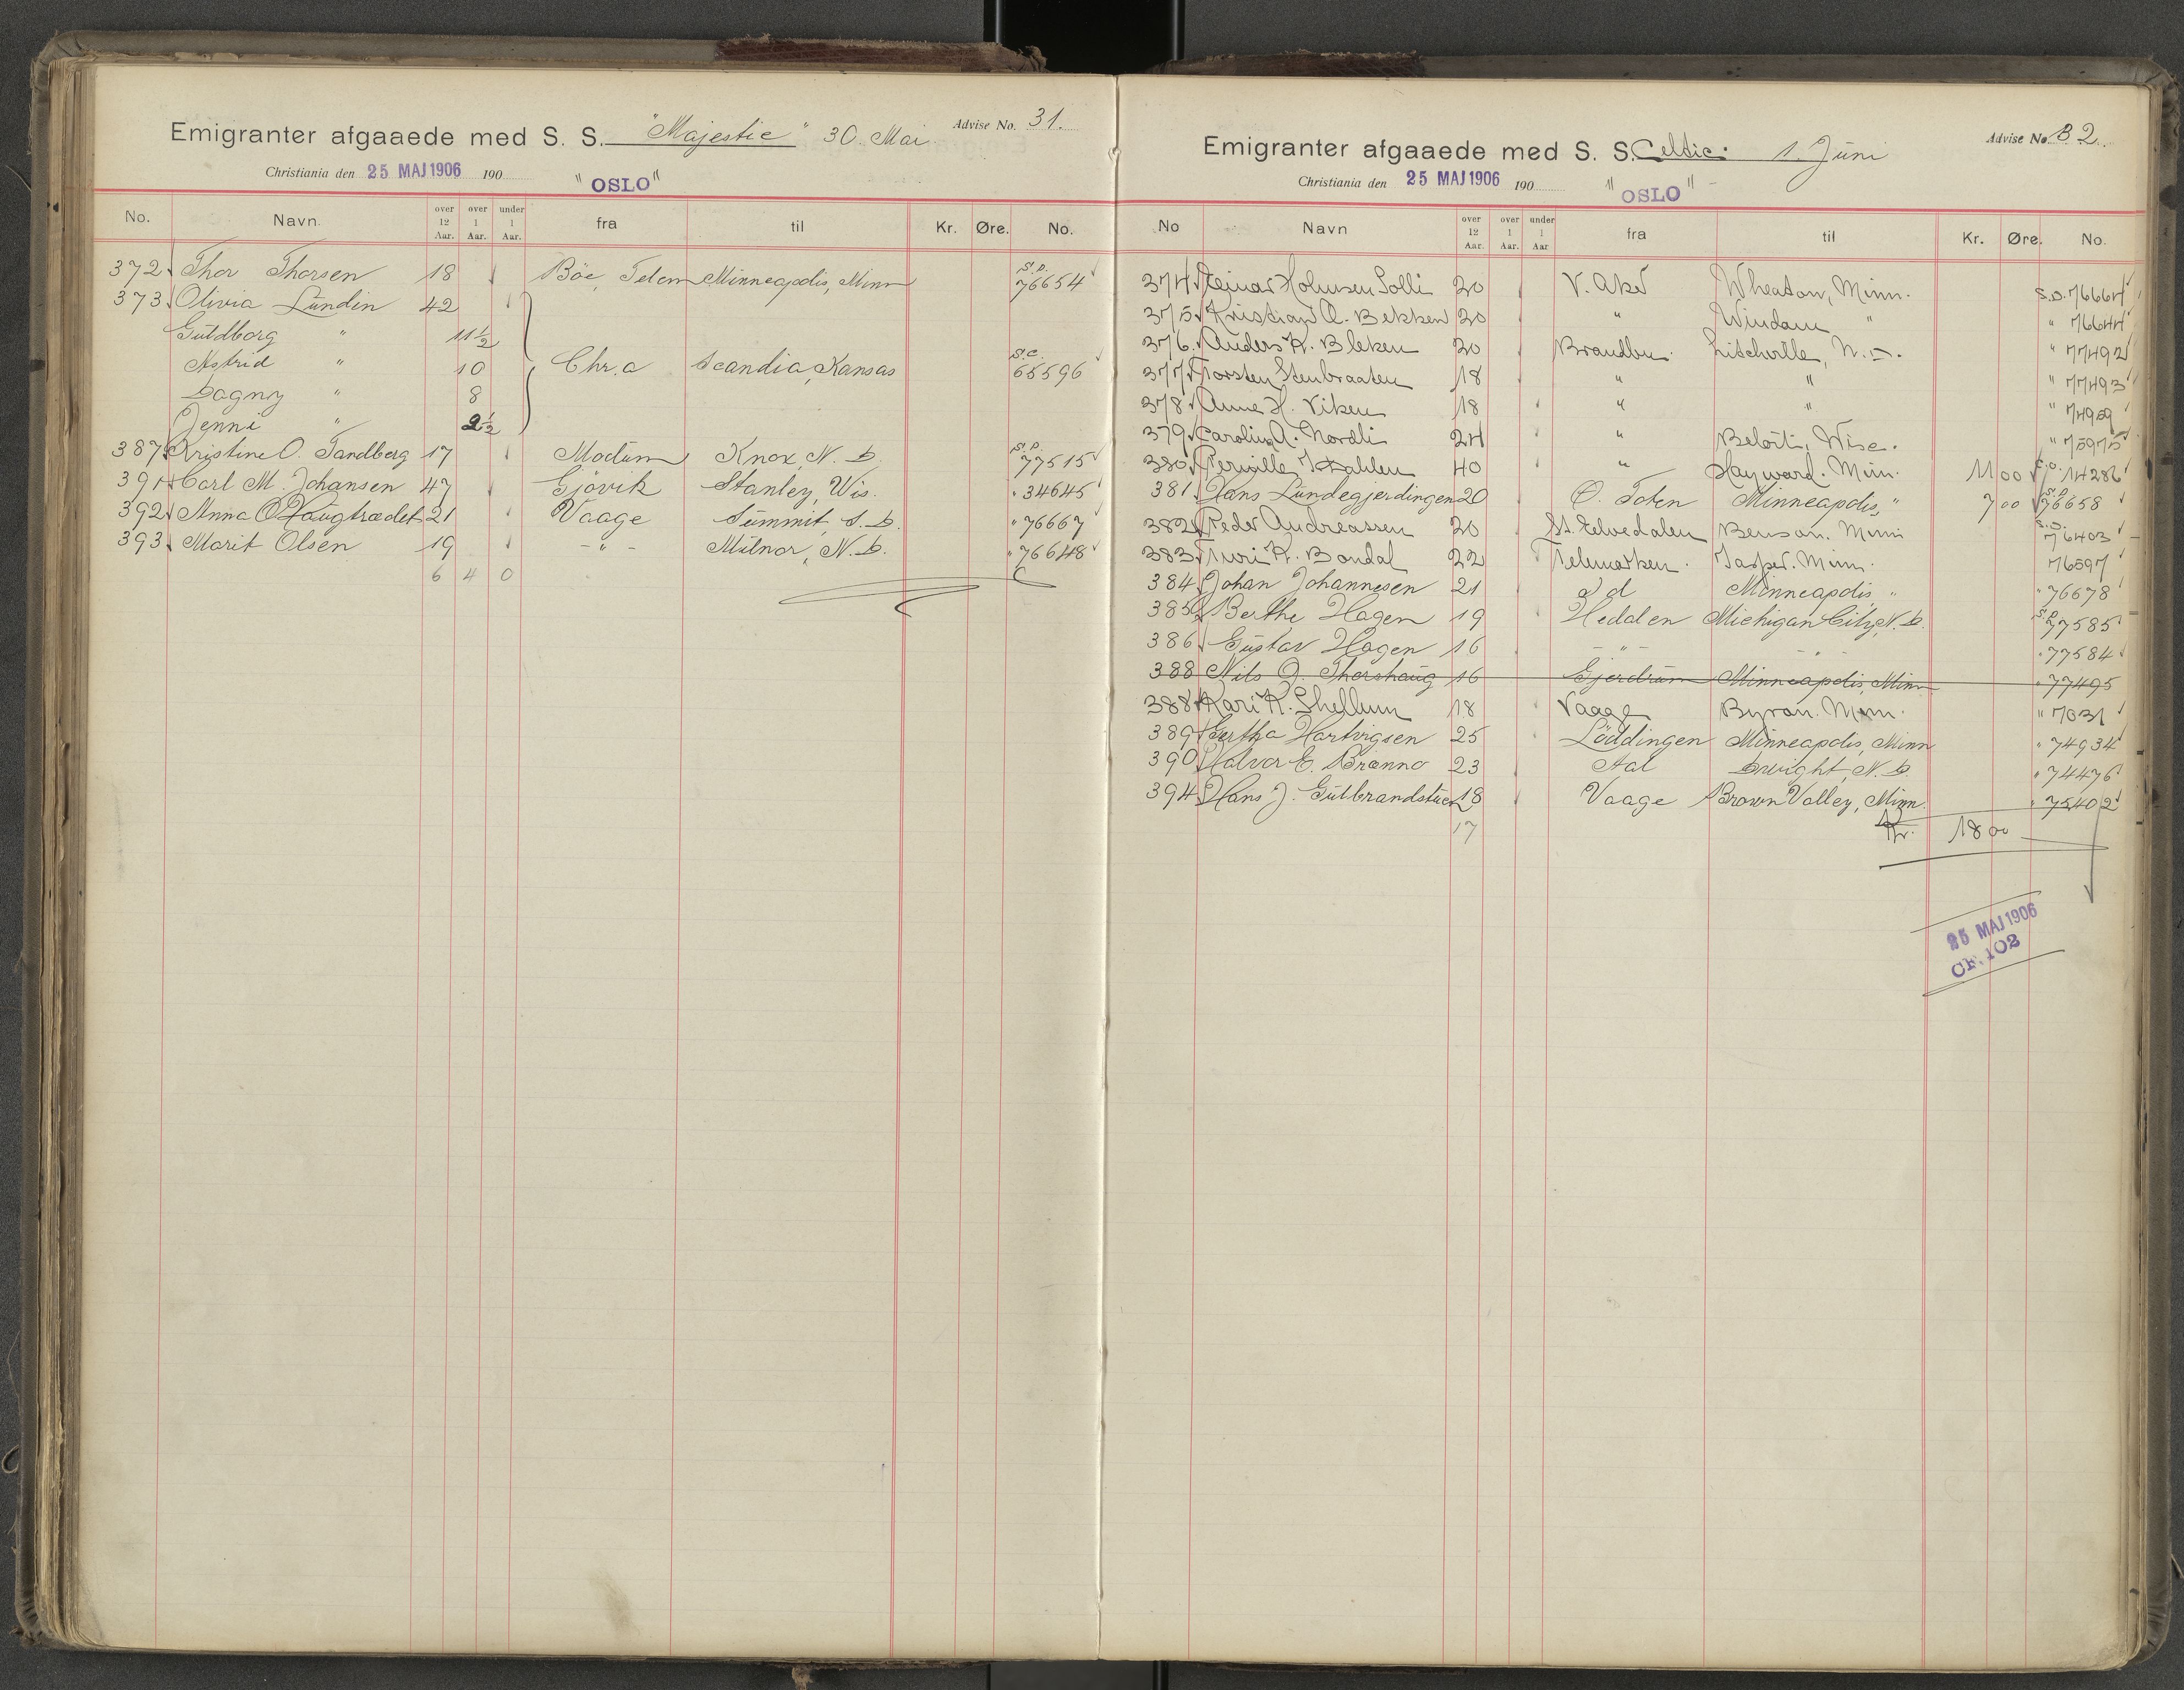 Emigranter afgaaede med S. S. "Majestic" 30. Mai. Advise No. 31.
Christiania den 25 MAJ 1906 190 "OSLO"
No. Navn. over 12 Aar. over 1 Aar. under 1 Aar. fra til Kr. Øre. No.
372 Thor Thorsen 18 Böe, Telem Minneapolis, Minn S.D. 76654
373 Olivia Lundin 42
Guldborg " 11 1/2
Astrid " 10 Chr.a Scandia, Kansas S.C. 65596
Dagny " 8
Jenni " 2 1/2
387 Kristine O. Sandberg 17 Modum Knox, N. D. S.D. 77515
391 Carl M. Johansen 47 Gjövik Stanley, Wis. " 34645
392 Anna O Haugtrædet 21 Vaage Summit, S. D. " 76667
393 Marit Olsen 19 - " - Milnor, N. D. " 76648
6 4 0
Emigranter afgaaede med S. S. Celtic. 1. Juni Advise No. 32.
Christiania den 25 MAJ 1906 190 "OSLO"
No Navn over 12 Aar. over 1 Aar. under 1 Aar fra til Kr. Øre. No.
374 Einar Holmsen Solli 20 V. Aker Wheaton, Minn. S.D. 76664
375 Kristian A. Bekken 20 " Windom " " 76644
376 Anders H. Bleken 20 Brandbu Litchville, N. D. " 77492
377 Torsten Stenbraaten 18 " " " 77493
378 Anne H. Viken 18 " " " 74959
379 Carolina A. Nordli 24 " Beloit, Wisc. " 75975
380 Pernille Dahlen 40 " Hayward. Minn. 11 00 14286
381 Hans Lundegjerdingen 20 O. Toten Minneapolis, " 7 00 S.D. 76658
382 Peder Andreassen 20 St. Elvedalen Benson. Minn S.D. 76403
383 Turi H. Bondal 22 Telemarken. Jasper. Minn. 76597
384 Johan Johannesen 21 d d Minneapolis " " 76678
385 Berthe Hagen 19 Hedalen Michigan City, N. D. S.D. 77585
386 Gustav Hagen 16 - " - " " 77584
388 Nils O. Thorshaug 16 Gjerdrum Minneapolis, Minn " 77495
388 Kari K. Shellum 18 Vaage Byron. Minn. " 7031
389 Hartvigsen 25 Lödingen Minneapolis, Minn " 74934
390 Halvor E. Brænno 23 Aal Dwight, N. D. " 74476
394 Hans J. Gulbrandstuen 18 Vaage Brown Valley, Minn. " 75402
17 Kr. 18 00
25 MAJ 1906
CF. 102